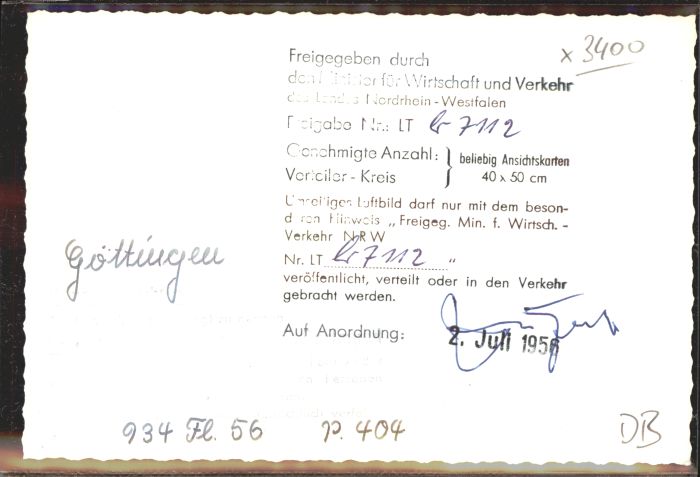 x 3400
Freigegeben durch
den Minister für Wirtschaft und Verkehr
des Landes Nordrhein-Westfalen
Freigabe Nr.: LT Gr 7112
Genehmigte Anzahl: } beliebig Ansichtskarten
Verteiler-Kreis 40 x 50 cm
Umseitiges Luftbild darf nur mit dem beson-
deren Hinweis „Freigeg. Min. f. Wirtsch.-
Verkehr NRW
Nr. LT Gr 7112 "
veröffentlicht, verteilt oder in den Verkehr
gebracht werden.
Göttingen
Auf Anordnung:
2. Juli 1956
934 Fl. 56 p. 404
DB